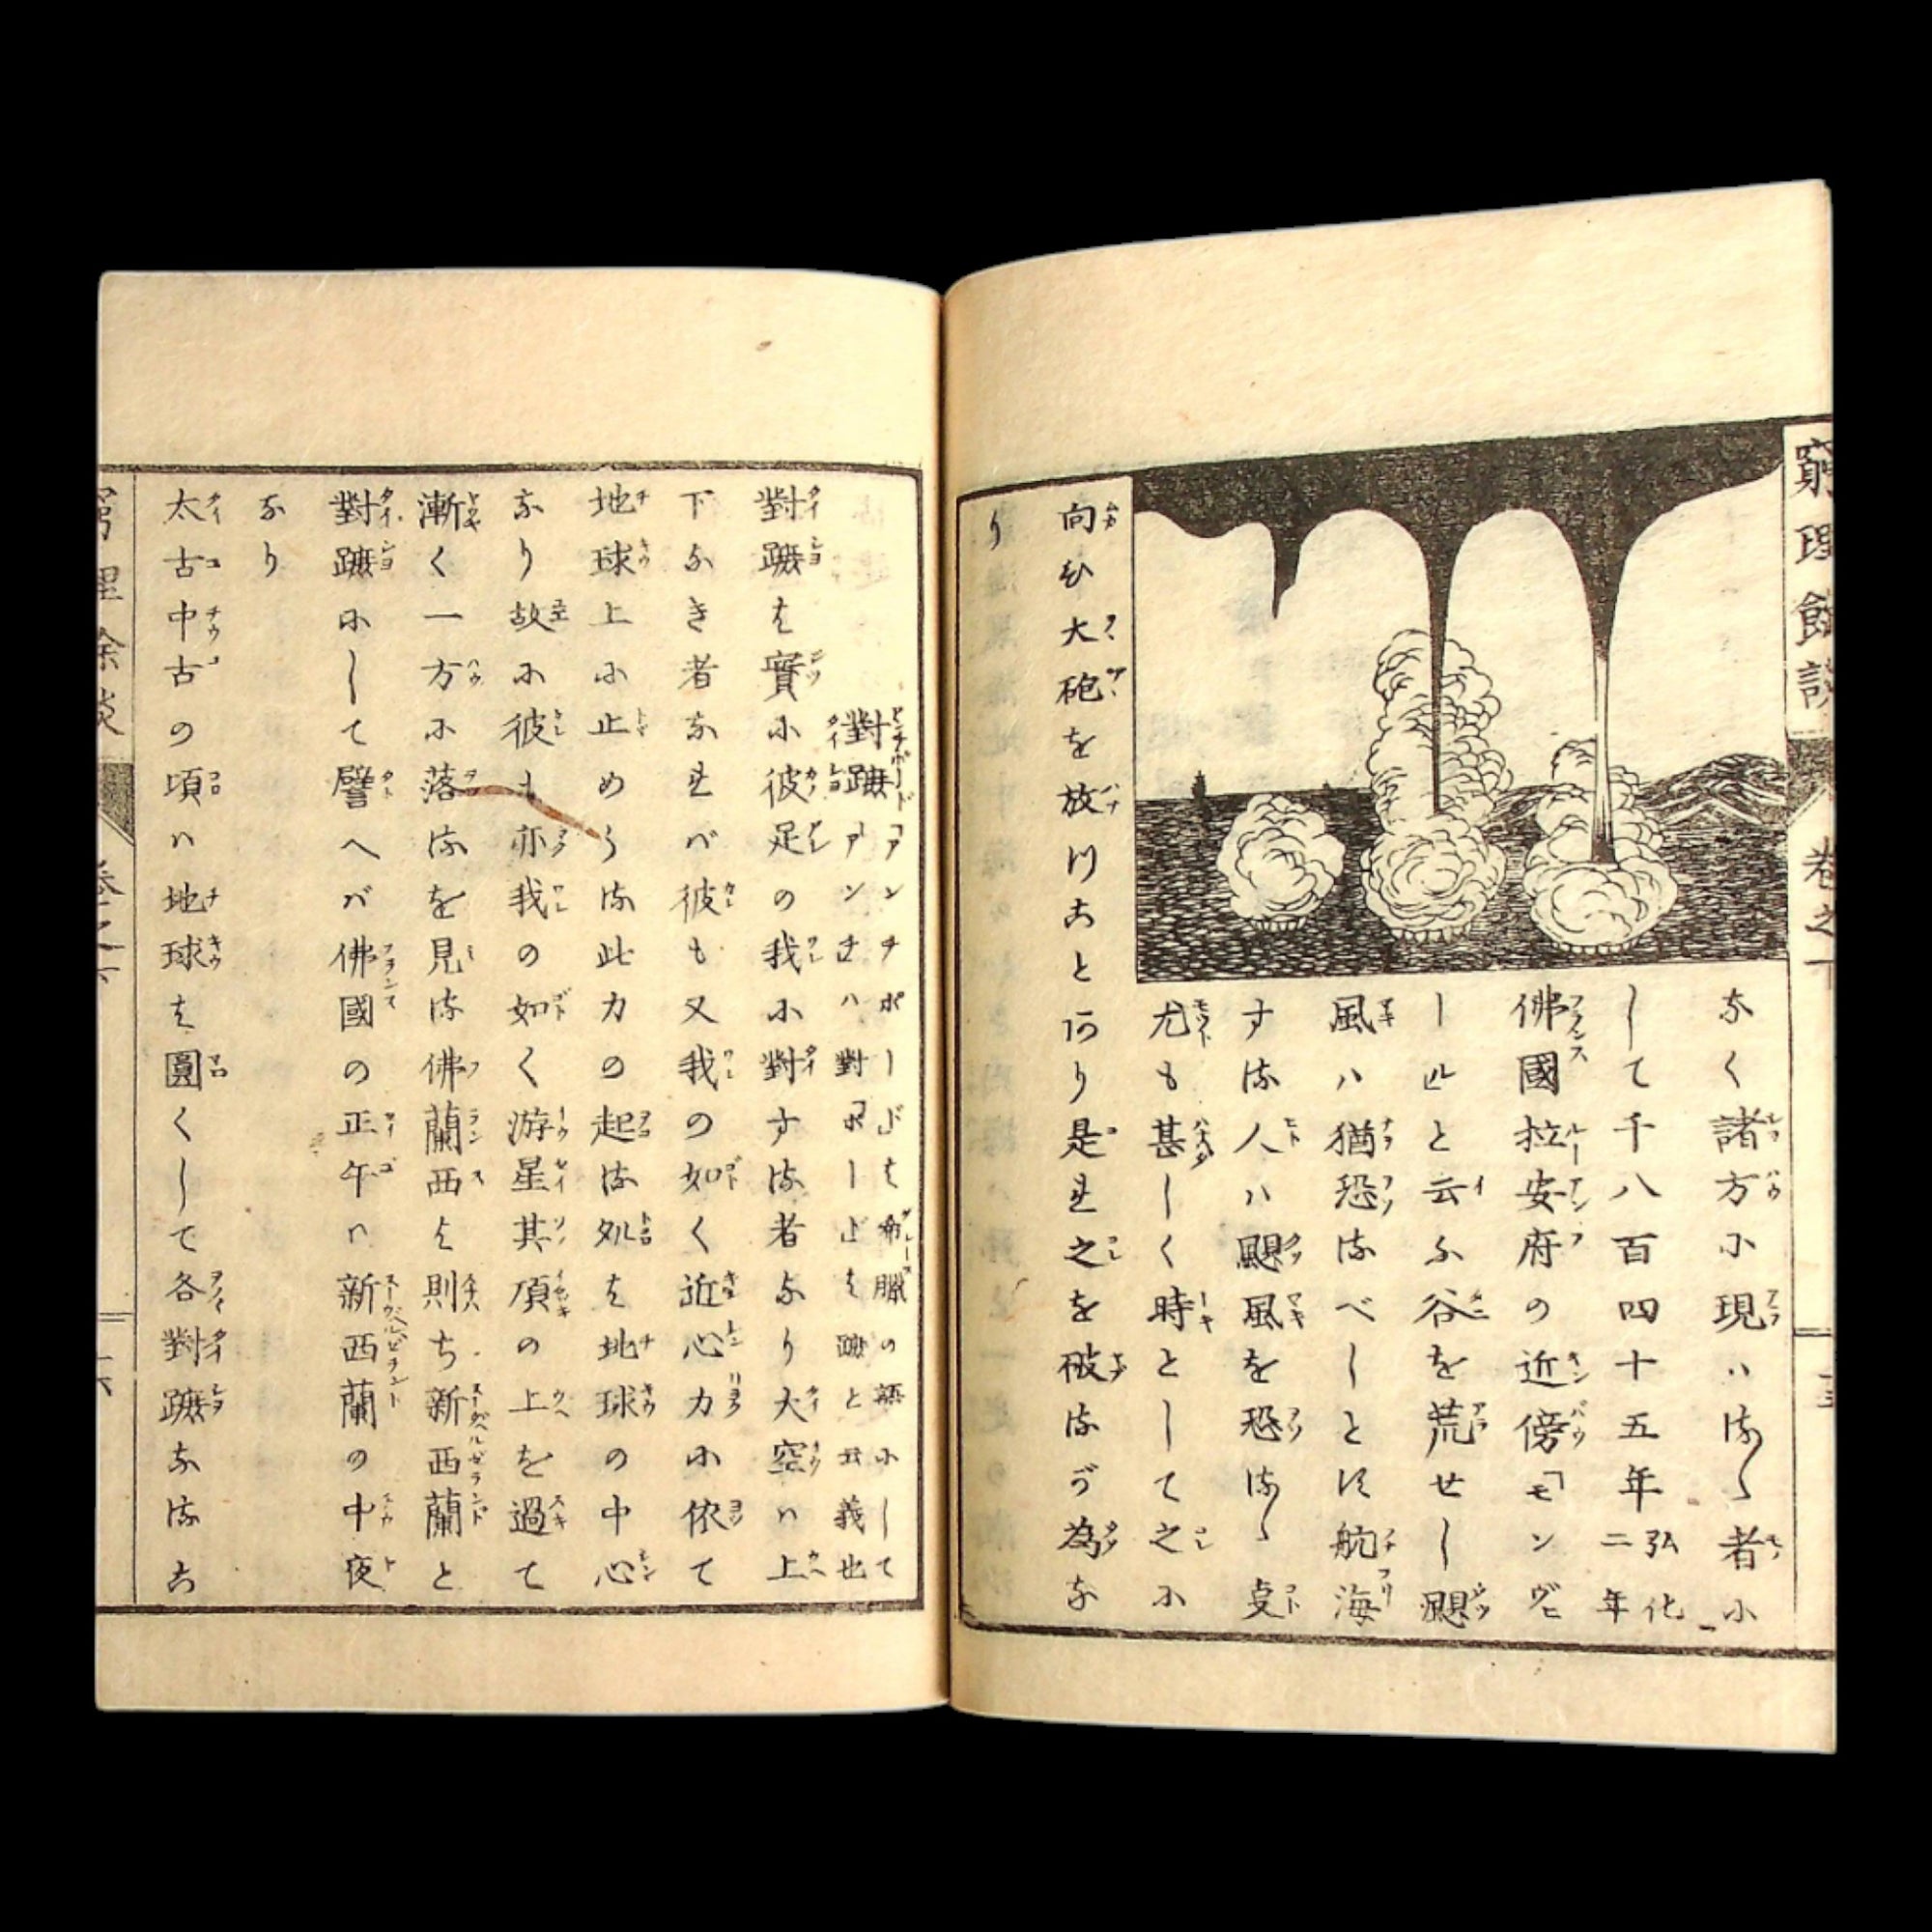 窮理餘談
卷之下
なく諸方に現ハるゝ者に
して千八百四十五年弘化二年
佛國拉安府の近傍「モンヴヒ
ール」と云ふ谷を荒せし颶
風ハ猶恐るべしとに航海
する人ハ颶風を恐るゝ叓
尤も甚しく時として之に
向ひ大砲を放つこと阿り是れ之を破るが為な
り
對蹠「アンチポード」は希臘の語にして
アンチハ對「ポード」は蹠と云義也
對蹠は實に彼足の我に對する者なり大空ハ上
下なき者なれバ彼も又我の如く近心力に依て
地球上に止めらる此力の起る処は地球の中心
なり故に彼も亦我の如く游星其頂の上を過て
漸く一方に落るを見る佛蘭西は則ち新西蘭と
對蹠にして譬へバ佛國の正午ハ新西蘭の中夜
なり
太古中古の頃ハ地球は圓くして各對蹠なるこ
窮理余談
卷之下